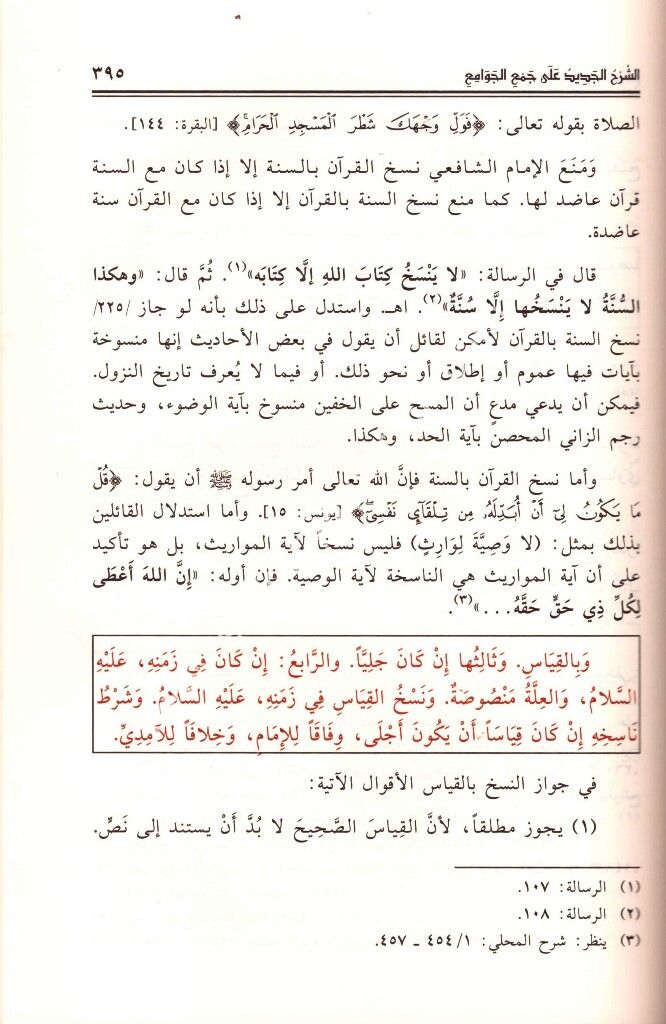 الشَّرْحُ الجَدِيدُ عَلَى جَمْعِ الجَوَامِعِ ٣٩٥
الصلاة بقوله تعالى: ﴿فَوَلِّ وَجْهَكَ شَطْرَ الْمَسْجِدِ الْحَرَامِ﴾ [البقرة: ١٤٤].
وَمَنَعَ الإمام الشافعي نسخ القرآن بالسنة إلا إذا كان مع السنة
قرآن عاضد لها. كما منع نسخ السنة بالقرآن إلا إذا كان مع القرآن سنة
عاضدة.
قال في الرسالة: «لا يَنْسَخُ كِتَابَ اللهِ إلَّا كِتَابَه»(١). ثُمَّ قال: «وهكذا
السُّنَّةُ لا يَنْسَخُها إلَّا سُنَّةٌ»(٢). اهـ. واستدل على ذلك بأنه لو جاز /٢٢٥/
نسخ السنة بالقرآن لأمكن لقائل أن يقول في بعض الأحاديث إنها منسوخة
بآيات فيها عموم أو إطلاق أو نحو ذلك. أو فيما لا يُعرف تاريخ النزول.
فيمكن أن يدعي مدعٍ أن المسح على الخفين منسوخ بآية الوضوء، وحديث
رجم الزاني المحصن بآية الحد، وهكذا.
وأما نسخ القرآن بالسنة فإنَّ الله تعالى أمر رسوله ﷺ أن يقول: ﴿قُلْ
مَا يَكُونُ لِي أَنْ أُبَدِّلَهُ مِن تِلْقَآيِ نَفْسِيٓ﴾ [يونس: ١٥]. وأما استدلال القائلين
بذلك بمثل: (لا وَصِيَّةَ لِوَارِثٍ) فليس نسخاً لآية المواريث، بل هو تأكيد
على أن آية المواريث هي الناسخة لآية الوصية. فإن أوله: «إنَّ اللهَ أَعْطَى
لِكُلِّ ذِي حَقٍّ حَقَّهُ...»(٣).
وَبِالقِيَاسِ. وَثَالِثُها إنْ كَانَ جَلِيَّاً. والرَّابعُ: إنْ كَانَ فِي زَمَنِهِ، عَلَيْهِ
السَّلامُ، وَالعِلَّةُ مَنْصُوصَةٌ. وَنَسْخُ القِيَاسِ فِي زَمَنِهِ، عَلَيْهِ السَّلامُ. وَشَرْطُ
نَاسِخِهِ إنْ كَانَ قِيَاسَاً أَنْ يَكُونَ أَجْلَى، وِفَاقَاً لِلإمَامِ، وَخِلافَاً لِلآمِدِيِّ.
في جواز النسخ بالقياس الأقوال الآتية:
(١) يجوز مطلقاً، لأنَّ القِيَاسَ الصَّحِيحَ لا بُدَّ أَنْ يستند إلى نَصٍّ.
(١) الرسالة: ١٠٧.
(٢) الرسالة: ١٠٨.
(٣) ينظر: شرح المحلي: ١/ ٤٥٤ ـ ٤٥٧.